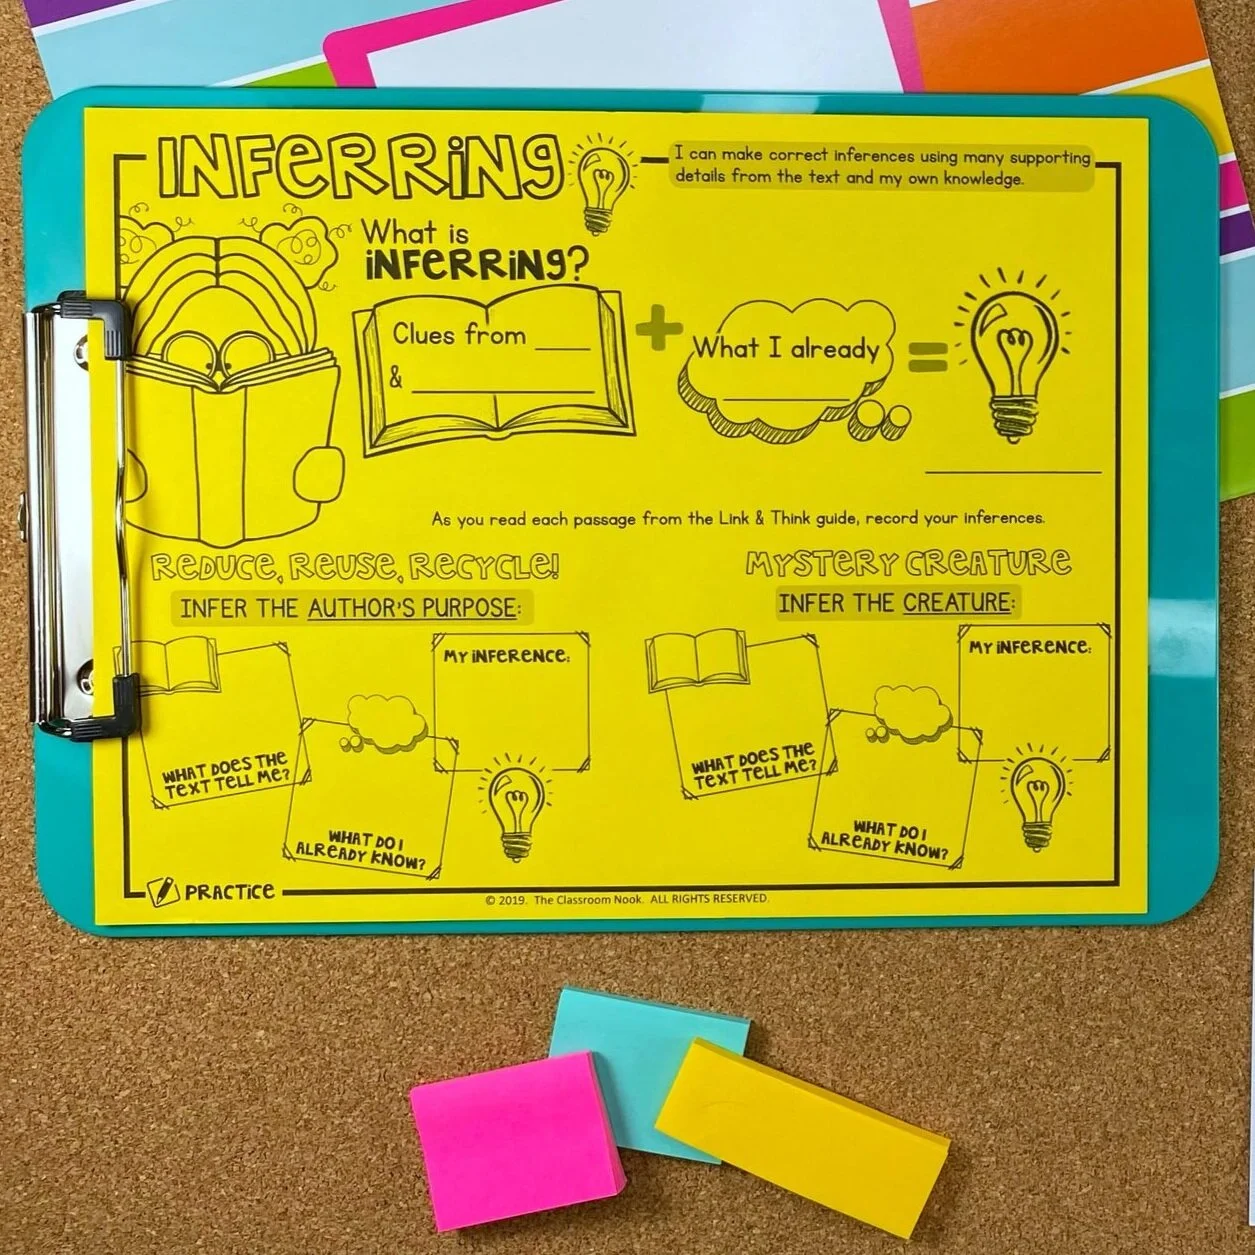 INFERRING
I can make correct inferences using many supporting
details from the text and my own knowledge.
What is
INFERRING?
Clues from ____
& ____________
What I already
____________
____________
As you read each passage from the Link & Think guide, record your inferences.
REDUCE, REUSE, RECYCLE!
INFER THE AUTHOR'S PURPOSE:
WHAT DOES THE
TEXT TELL ME?
WHAT DO I
ALREADY KNOW?
MY INFERENCE:
MYSTERY CREATURE
INFER THE CREATURE:
WHAT DOES THE
TEXT TELL ME?
WHAT DO I
ALREADY KNOW?
MY INFERENCE:
PRACTICE
© 2019. The Classroom Nook. ALL RIGHTS RESERVED.